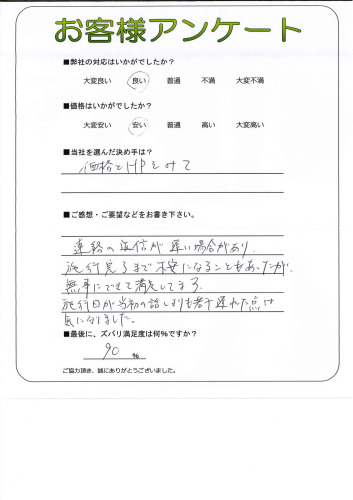 お客様アンケート
■弊社の対応はいかがでしたか？
大変良い 良い 普通 不満 大変不満
■価格はいかがでしたか？
大変安い 安い 普通 高い 大変高い
■当社を選んだ決め手は？
価格とHPをみて
■ご感想・ご要望などをお書き下さい。
連絡の返信が遅い場合があり、
施行完了まで不安になることもあったが、
無事にできて満足してます。
施行日が当初の話しよりも若干遅れた点は
気になりました。
■最後に、ズバリ満足度は何%ですか？
90 %
ご協力頂き、誠にありがとうございました。